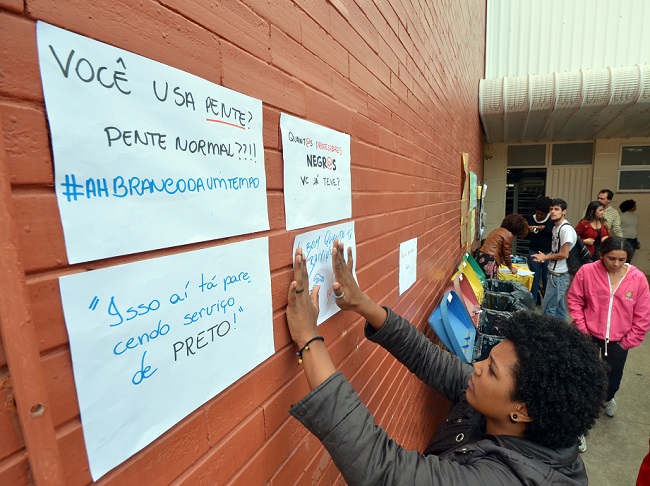 VOCÊ USA PENTE?
PENTE NORMAL??!!
#AHBRANCODAUMTEMPO
QUANT@S PROFESSORES
NEGR@S
VC JÁ TEVE?
"Isso aí tá pare_
cendo serviço
de PRETO!"
É BOM